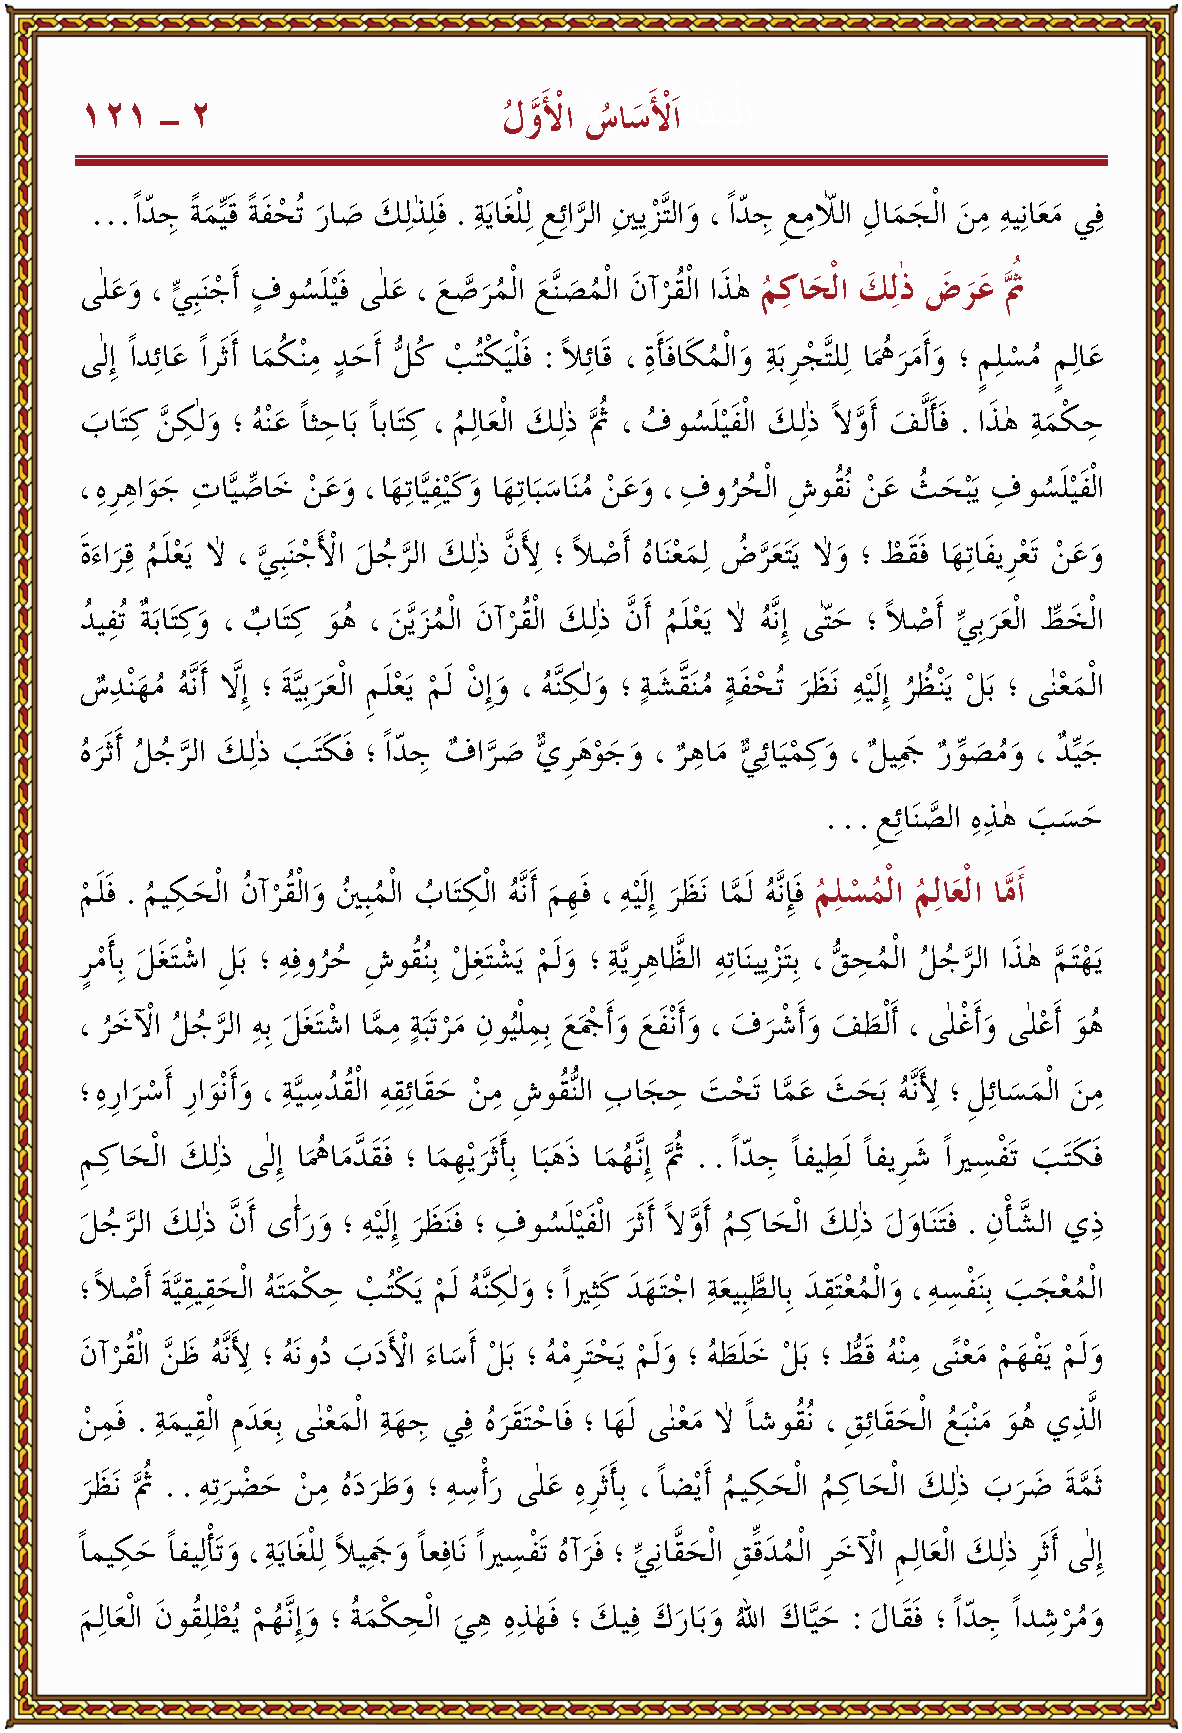 اَلْأَسَاسُ الْأَوَّلُ ٢ ـ ١٢١
فِي مَعَانِيهِ مِنَ الْجَمَالِ اللَّامِعِ جِدّاً ، وَالتَّزْيِينِ الرَّائِعِ لِلْغَايَةِ . فَلِذٰلِكَ صَارَ تُحْفَةً قَيِّمَةً جِدّاً . . .
ثُمَّ عَرَضَ ذٰلِكَ الْحَاكِمُ هٰذَا الْقُرْآنَ الْمُصَنَّعَ الْمُرَصَّعَ ، عَلٰى فَيْلَسُوفٍ أَجْنَبِيٍّ ، وَعَلٰى
عَالِمٍ مُسْلِمٍ ؛ وَأَمَرَهُمَا لِلتَّجْرِبَةِ وَالْمُكَافَأَةِ ، قَائِلاً : فَلْيَكْتُبْ كُلُّ أَحَدٍ مِنْكُمَا أَثَراً عَائِداً إِلٰى
حِكْمَةِ هٰذَا . فَأَلَّفَ أَوَّلاً ذٰلِكَ الْفَيْلَسُوفُ ، ثُمَّ ذٰلِكَ الْعَالِمُ ، كِتَاباً بَاحِثاً عَنْهُ ؛ وَلٰكِنَّ كِتَابَ
الْفَيْلَسُوفِ يَبْحَثُ عَنْ نُقُوشِ الْحُرُوفِ ، وَعَنْ مُنَاسَبَاتِهَا وَكَيْفِيَّاتِهَا ، وَعَنْ خَاصِّيَّاتِ جَوَاهِرِهِ ،
وَعَنْ تَعْرِيفَاتِهَا فَقَطْ ؛ وَلَا يَتَعَرَّضُ لِمَعْنَاهُ أَصْلاً ؛ لِأَنَّ ذٰلِكَ الرَّجُلَ الْأَجْنَبِيَّ ، لَا يَعْلَمُ قِرَاءَةَ
الْخَطِّ الْعَرَبِيِّ أَصْلاً ؛ حَتّٰى إِنَّهُ لَا يَعْلَمُ أَنَّ ذٰلِكَ الْقُرْآنَ الْمُزَيَّنَ ، هُوَ كِتَابٌ ، وَكِتَابَةٌ تُفِيدُ
الْمَعْنٰى ؛ بَلْ يَنْظُرُ إِلَيْهِ نَظَرَ تُحْفَةٍ مُنَقَّشَةٍ ؛ وَلٰكِنَّهُ ، وَإِنْ لَمْ يَعْلَمِ الْعَرَبِيَّةَ ؛ إِلَّا أَنَّهُ مُهَنْدِسٌ
جَيِّدٌ ، وَمُصَوِّرٌ جَمِيلٌ ، وَكِمْيَائِيٌّ مَاهِرٌ ، وَجَوْهَرِيٌّ صَرَّافٌ جِدّاً ؛ فَكَتَبَ ذٰلِكَ الرَّجُلُ أَثَرَهُ
حَسَبَ هٰذِهِ الصَّنَائِعِ . . .
أَمَّا الْعَالِمُ الْمُسْلِمُ فَإِنَّهُ لَمَّا نَظَرَ إِلَيْهِ ، فَهِمَ أَنَّهُ الْكِتَابُ الْمُبِينُ وَالْقُرْآنُ الْحَكِيمُ . فَلَمْ
يَهْتَمَّ هٰذَا الرَّجُلُ الْمُحِقُّ ، بِتَزْيِينَاتِهِ الظَّاهِرِيَّةِ ؛ وَلَمْ يَشْتَغِلْ بِنُقُوشِ حُرُوفِهِ ؛ بَلِ اشْتَغَلَ بِأَمْرٍ
هُوَ أَعْلٰى وَأَغْلٰى ، أَلْطَفَ وَأَشْرَفَ ، وَأَنْفَعَ وَأَجْمَعَ بِمِلْيُونِ مَرْتَبَةٍ مِمَّا اشْتَغَلَ بِهِ الرَّجُلُ الْآخَرُ ،
مِنَ الْمَسَائِلِ ؛ لِأَنَّهُ بَحَثَ عَمَّا تَحْتَ حِجَابِ النُّقُوشِ مِنْ حَقَائِقِهِ الْقُدْسِيَّةِ ، وَأَنْوَارِ أَسْرَارِهِ ؛
فَكَتَبَ تَفْسِيراً شَرِيفاً لَطِيفاً جِدّاً . . ثُمَّ إِنَّهُمَا ذَهَبَا بِأَثَرَيْهِمَا ؛ فَقَدَّمَاهُمَا إِلٰى ذٰلِكَ الْحَاكِمِ
ذِي الشَّأْنِ . فَتَنَاوَلَ ذٰلِكَ الْحَاكِمُ أَوَّلاً أَثَرَ الْفَيْلَسُوفِ ؛ فَنَظَرَ إِلَيْهِ ؛ وَرَأٰى أَنَّ ذٰلِكَ الرَّجُلَ
الْمُعْجَبَ بِنَفْسِهِ ، وَالْمُعْتَقِدَ بِالطَّبِيعَةِ اجْتَهَدَ كَثِيراً ؛ وَلٰكِنَّهُ لَمْ يَكْتُبْ حِكْمَتَهُ الْحَقِيقِيَّةَ أَصْلاً ؛
وَلَمْ يَفْهَمْ مَعْنًى مِنْهُ قَطُّ ؛ بَلْ خَلَطَهُ ؛ وَلَمْ يَحْتَرِمْهُ ؛ بَلْ أَسَاءَ الْأَدَبَ دُونَهُ ؛ لِأَنَّهُ ظَنَّ الْقُرْآنَ
الَّذِي هُوَ مَنْبَعُ الْحَقَائِقِ ، نُقُوشاً لَا مَعْنٰى لَهَا ؛ فَاحْتَقَرَهُ فِي جِهَةِ الْمَعْنٰى بِعَدَمِ الْقِيمَةِ . فَمِنْ
ثَمَّةَ ضَرَبَ ذٰلِكَ الْحَاكِمُ الْحَكِيمُ أَيْضاً ، بِأَثَرِهِ عَلٰى رَأْسِهِ ؛ وَطَرَدَهُ مِنْ حَضْرَتِهِ . . ثُمَّ نَظَرَ
إِلٰى أَثَرِ ذٰلِكَ الْعَالِمِ الْآخَرِ الْمُدَقِّقِ الْحَقَّانِيِّ ؛ فَرَآهُ تَفْسِيراً نَافِعاً وَجَمِيلاً لِلْغَايَةِ ، وَتَأْلِيفاً حَكِيماً
وَمُرْشِداً جِدّاً ؛ فَقَالَ : حَيَّاكَ اللّٰهُ وَبَارَكَ فِيكَ ؛ فَهٰذِهِ هِيَ الْحِكْمَةُ ؛ وَإِنَّهُمْ يُطْلِقُونَ الْعَالِمَ